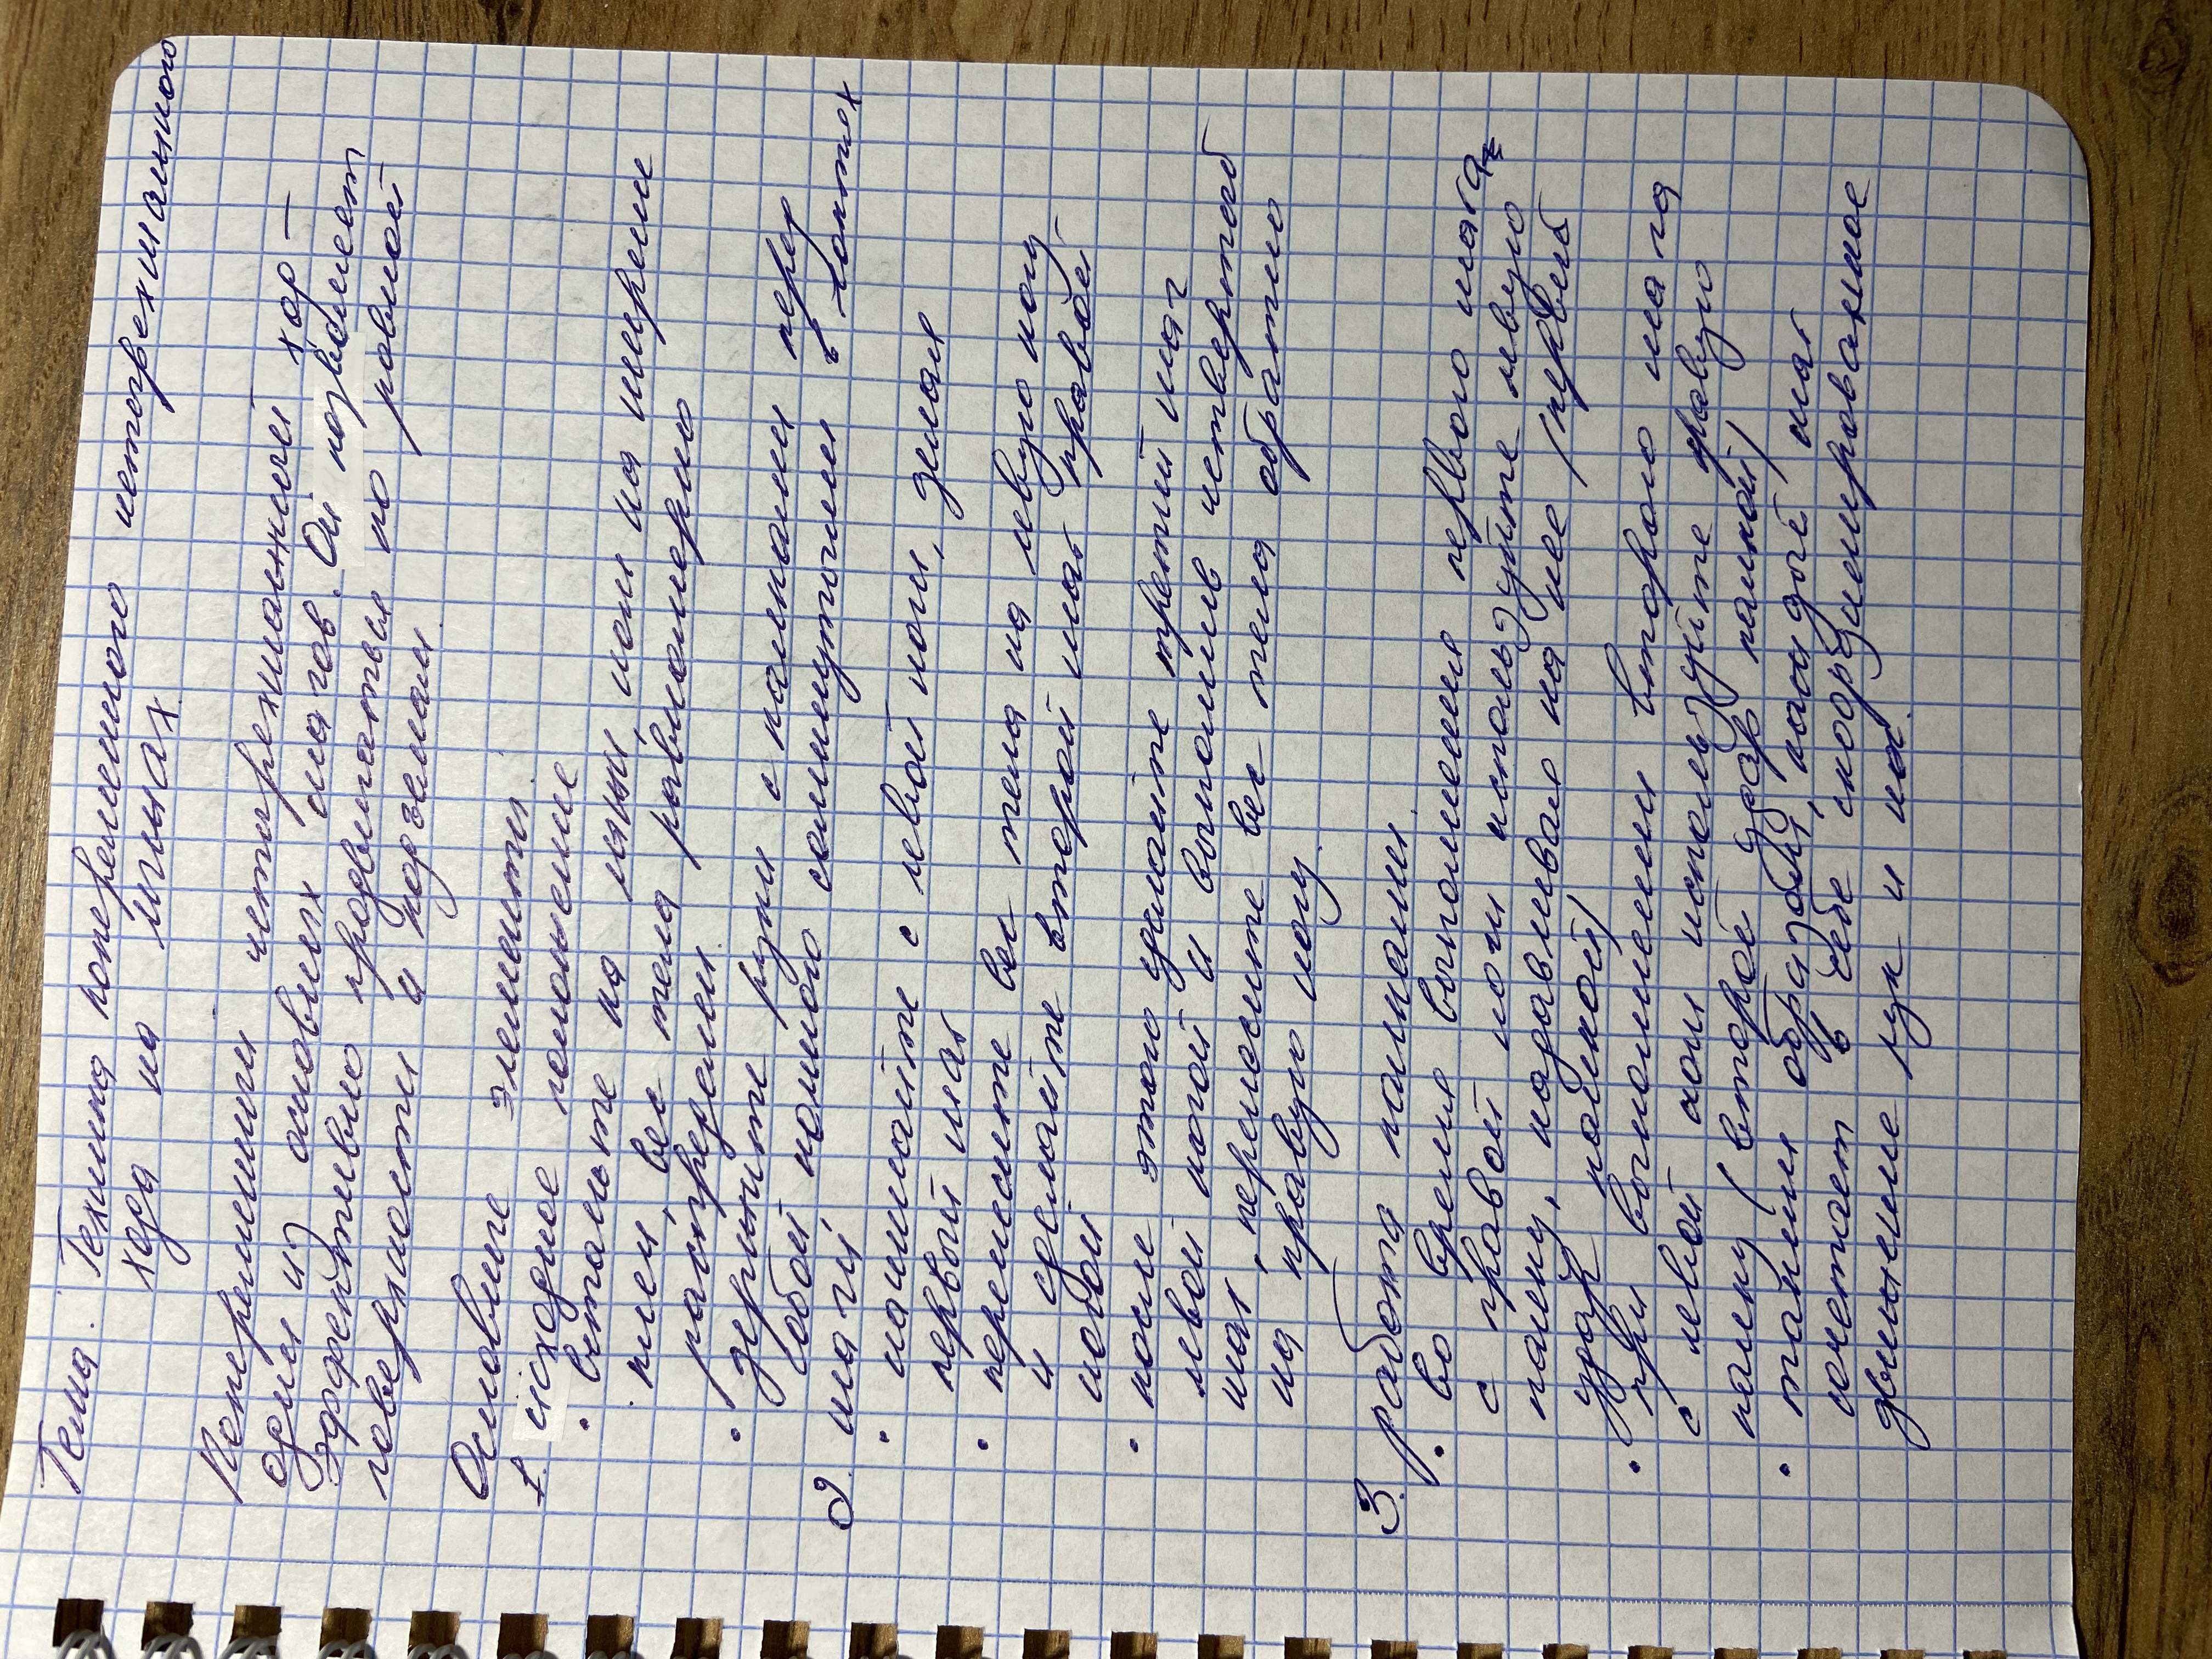 Тема. Техника попеременного четырехшажного
хода на лыжах
Попеременный четырехшажный ход —
один из основных шагов. Он позволяет
эффективно продвигаться по ровной
поверхности и подъемам.
Основные элементы.
1. исходное положение
• встаньте на лыжи, ноги на ширине
плеч, вес тела равномерно
распределен.
• держите руки с палками перед
собой, немного согнутыми в локтях
2. шаги
• начинайте с левой ноги, делая
первый шаг
• перенесите вес тела на левую ногу
и сделайте второй шаг правой
ногой
• после этого сделайте третий шаг
левой ногой и выполнив четвертый
шаг, перенесите вес тела обратно
на правую ногу.
3. работа палками.
• во время выполнения первого шага
с правой ноги используйте левую
палку, надавливая на нее (первый
удар палкой)
• при выполнении второго шага
с левой ноги используйте правую
палку (второй удар палкой)
• таким образом, каждый шаг
сочетает в себе скоординированное
движение рук и ног.